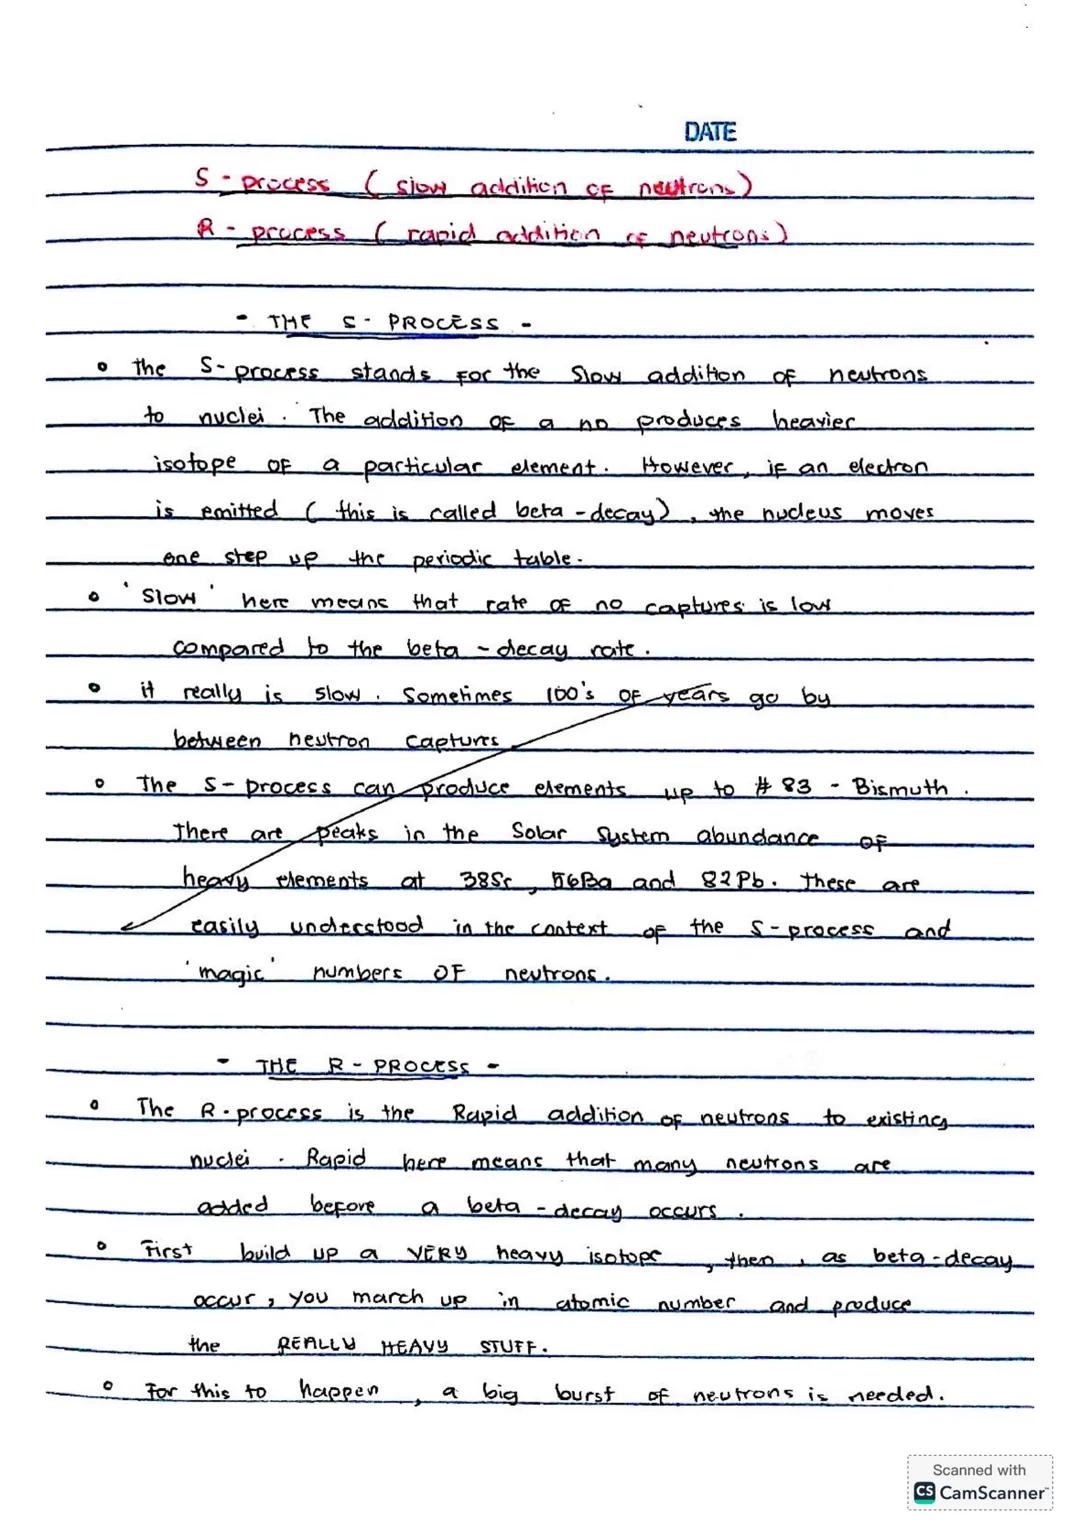 DATE
S - process ( slow addition of neutrons )
R - process ( rapid addition of neutrons )
- THE S - PROCESS -
• the S- process stands for the Slow addition of neutrons
to nuclei . The addition of a no produces heavier
isotope of a particular element . However , if an electron
is emitted ( this is called beta - decay) , the nucleus moves
one step up the periodic table .
• 'Slow' here means that rate of no captures is low
compared to the beta - decay rate .
• it really is slow . Sometimes 100's of years go by
between neutron captures
• The S- process can produce elements up to # 83 - Bismuth .
There are peaks in the Solar System abundance of
heavy elements at 38Sr , 56Ba and 82Pb . these are
easily understood in the context of the S- process and
'magic' numbers of neutrons .
- THE R - PROCESS -
• The R - process is the Rapid addition of neutrons to existing
nuclei . Rapid here means that many neutrons are
added before a beta - decay occurs .
• First build up a VERY heavy isotope , then , as beta - decay
occur , you march up in atomic number and produce
the REALLY HEAVY STUFF .
• For this to happen , a big burst of neutrons is needed .
Scanned with
CS CamScanner